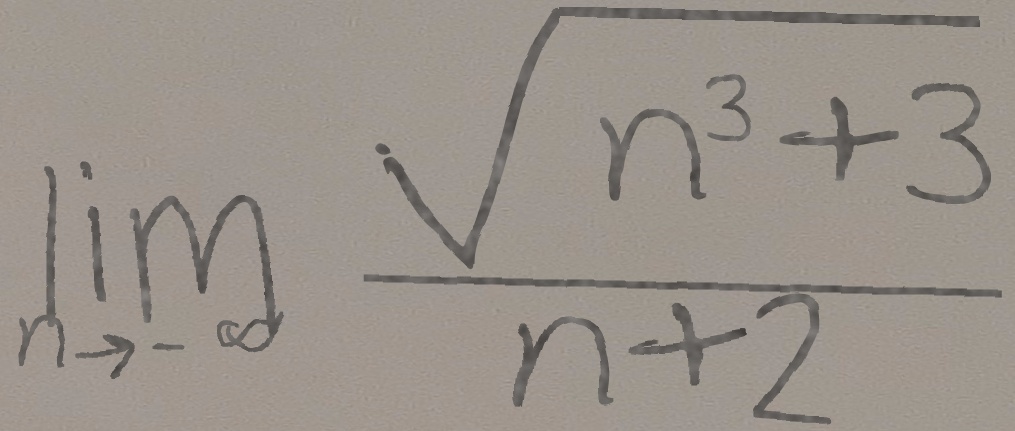 lim n→-∞ √(n³+3) / (n+2)